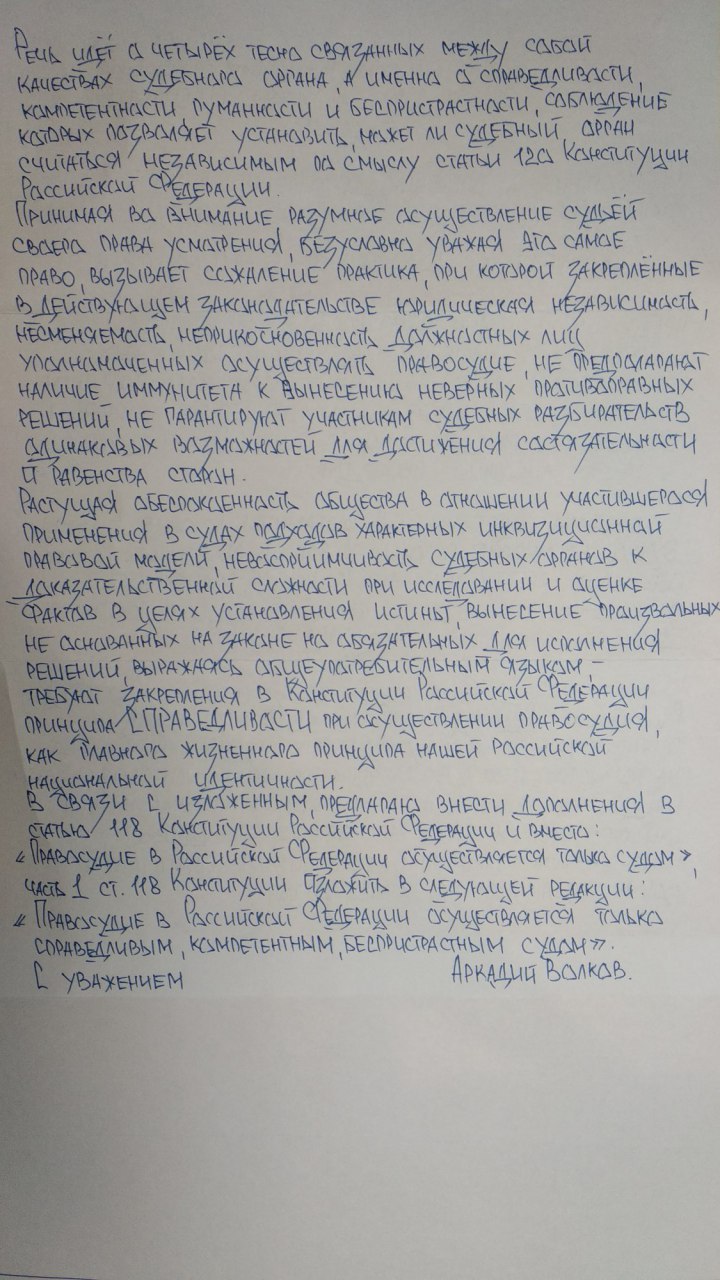 Речь идёт о четырёх тесно связанных между собой
качествах судебного органа, а именно о справедливости,
компетентности, гуманности и беспристрастности, соблюдение
которых позволяет установить, может ли судебный орган
считаться независимым по смыслу статьи 120 Конституции
Российской Федерации.
Принимая во внимание разумное осуществление судьёй
своего права усмотрения, безусловно уважая это самое
право, вызывает сожаление практика, при которой закреплённые
в действующем законодательстве юридическая независимость,
несменяемость, неприкосновенность должностных лиц
уполномоченных осуществлять правосудие, не предполагают
наличие иммунитета к вынесению неверных противоправных
решений, не гарантируют участникам судебных разбирательств
одинаковых возможностей для достижения состязательности
и равенства сторон.
Растущая обеспокоенность общества в отношении участившегося
применения в судах подходов характерных инквизиционной
правовой модели, невосприимчивость судебных органов к
доказательственной сложности при исследовании и оценке
фактов в целях установления истины, вынесение произвольных
не основанных на законе но обязательных для исполнения
решений, выражаясь общеупотребительным языком –
требуют закрепления в Конституции Российской Федерации
принципа СПРАВЕДЛИВОСТИ при осуществлении правосудия,
как главного жизненного принципа нашей российской
национальной идентичности.
В связи с изложенным, предлагаю внести дополнения в
статью 118 Конституции Российской Федерации и вместо:
«Правосудие в Российской Федерации осуществляется только судом»,
часть 1 ст. 118 Конституции изложить в следующей редакции:
«Правосудие в Российской Федерации осуществляется только
справедливым, компетентным, беспристрастным судом».
С уважением Аркадий Волков.